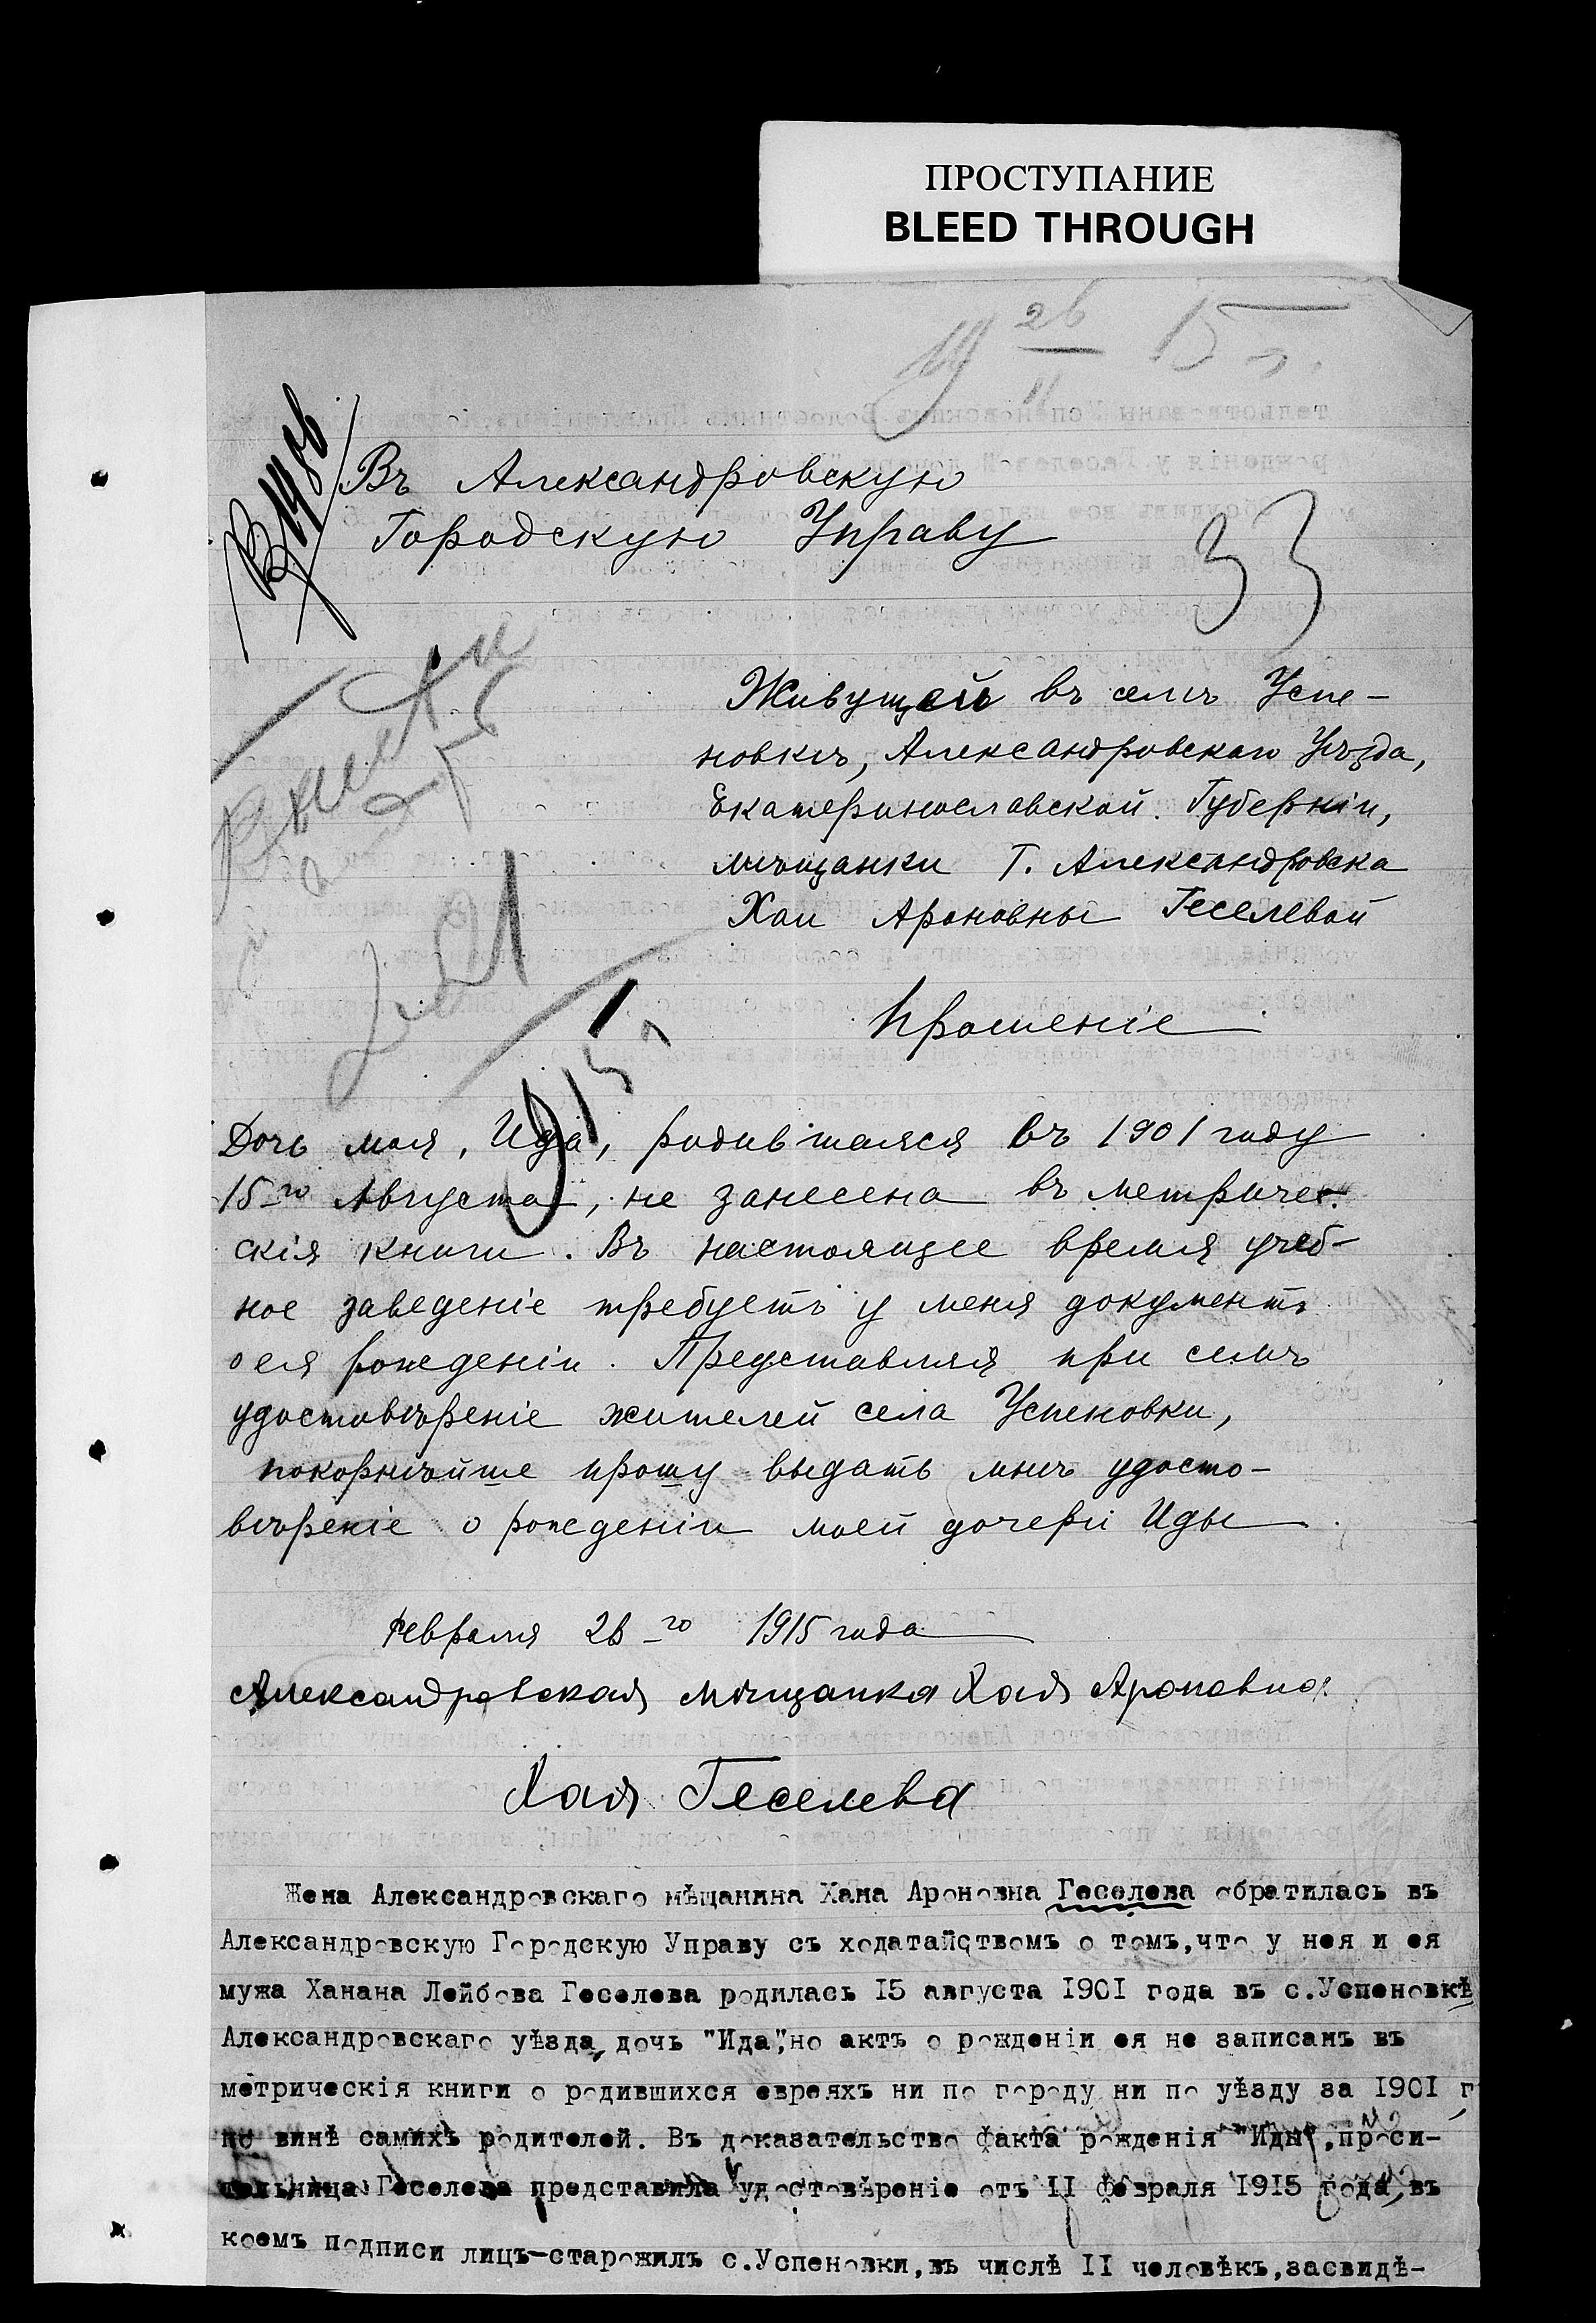 ПРОСТУПАНИЕ
BLEED THROUGH
26
II 15 г.
В 1486
Въ Александровскую
Городскую Управу
33
Живущей въ селѣ Успе-
новкѣ, Александровскаго Уѣзда,
Екатеринославской Губерніи,
мѣщанки Г. Александровска
Хаи Ароновны Геселевой
Прошеніе
Дочь моя, Ида, родившаяся въ 1901 году
15го Августа, не занесена въ метричес-
скія книги. Въ настоящее время учеб-
ное заведеніе требуетъ у меня документъ
о ея рожденіи. Представляя при семъ
удостовѣреніе жителей села Успеновки,
покорнѣйше прошу выдать мнѣ удосто-
вѣреніе о рожденіи моей дочери Иды.
Февраля 26-го 1915 года
Александровская мѣщанка Хая Ароновна
Хая Геселева
Жена Александровскаго мѣщанина Хана Ароновна Геселева обратилась въ
Александровскую Городскую Управу съ ходатайствомъ о томъ,что у нея и ея
мужа Ханана Лейбова Геселева родилась 15 августа 1901 года въ с.Успеновкѣ
Александровскаго уѣзда, дочь "Ида",но актъ о рожденіи ея не записанъ въ
метрическія книги о родившихся евреяхъ ни по городу ни по уѣзду за 1901 г,
по винѣ самихъ родителей. Въ доказательство факта рожденія "Иды",проси-
тельница Геселева представила удостовѣреніе отъ II февраля 1915 года,въ
коемъ подписи лицъ-старожилъ с.Успеновки,въ числѣ II человѣкъ,засвидѣ-